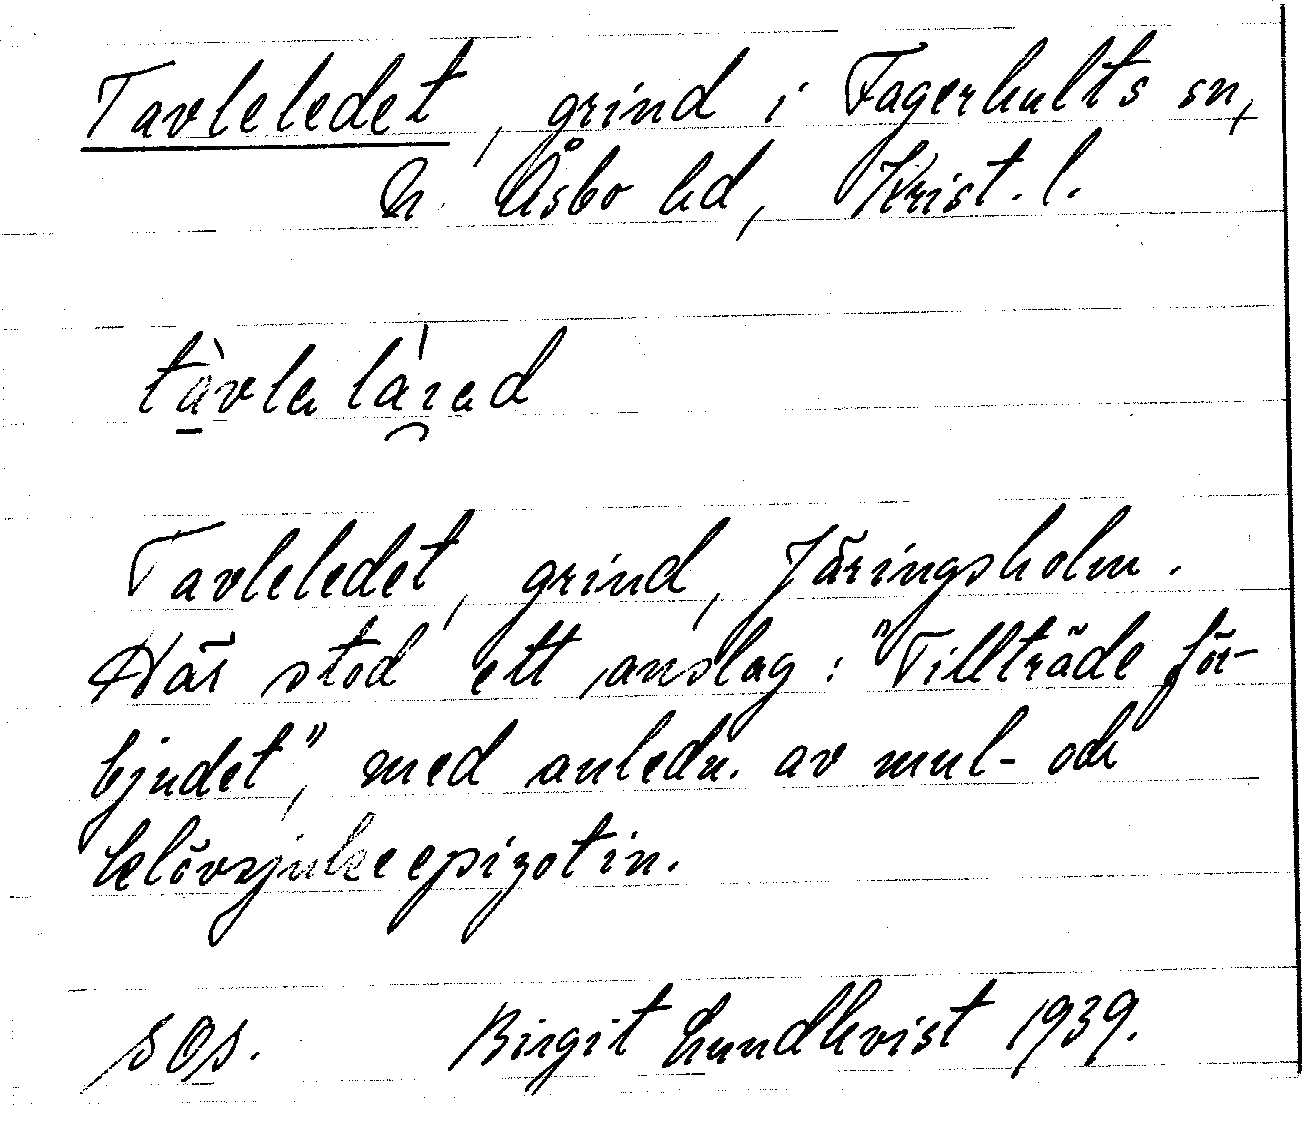 Tavleledet, grind i Fagerhults sn,
N. Åsbo hd, Krist. l.
Tavleledet, grind, Järingsholm.
Här stod ett anslag: "Tillträde för-
bjudet", med anledn. av mul- och
klövsjukeepizotin.
SOS. Birgit Lundkvist 1939.